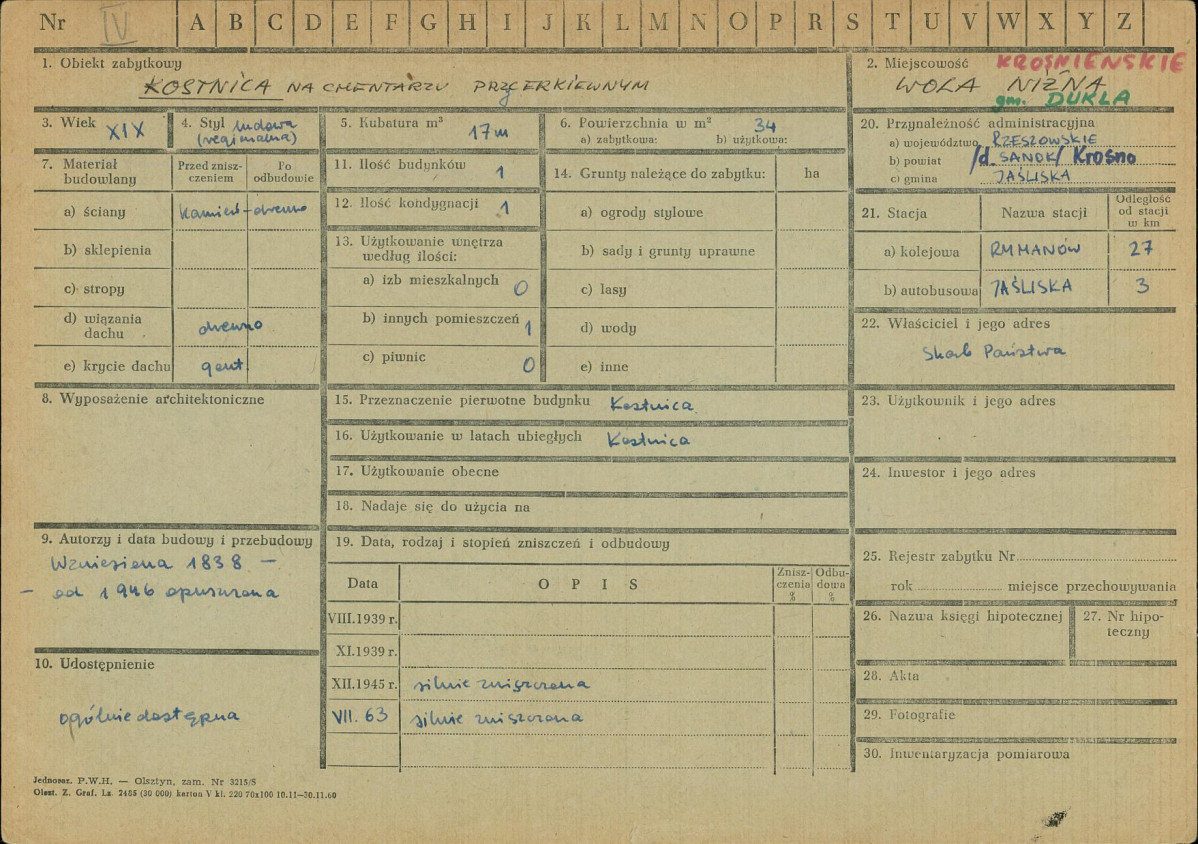 Nr IV A B C D E F G H I J K L M N O P R S T U V W X Y Z
1. Obiekt zabytkowy
KOSTNICA NA CMENTARZU PRZYCERKIEWNYM
2. Miejscowość KROŚNIEŃSKIE
WOLA NIŻNA
gm. DUKLA
3. Wiek XIX
4. Styl ludowa
(regionalna)
5. Kubatura m³ 17m
6. Powierzchnia w m² 34
a) zabytkowa: b) użytkowa:
7. Materiał budowlany
Przed zniszczeniem
Po odbudowie
a) ściany kamień-drewno
b) sklepienia
c) stropy
d) wiązania dachu drewno
e) krycie dachu gont
8. Wyposażenie architektoniczne
9. Autorzy i data budowy i przebudowy
Wzniesiona 1838 –
– od 1946 opuszczona
10. Udostępnienie
ogólnie dostępna
11. Ilość budynków 1
12. Ilość kondygnacji 1
13. Użytkowanie wnętrza
według ilości:
a) izb mieszkalnych 0
b) innych pomieszczeń 1
c) piwnic 0
14. Grunty należące do zabytku: ha
a) ogrody stylowe
b) sady i grunty uprawne
c) lasy
d) wody
e) inne
15. Przeznaczenie pierwotne budynku Kostnica
16. Użytkowanie w latach ubiegłych Kostnica
17. Użytkowanie obecne
18. Nadaje się do użycia na
19. Data, rodzaj i stopień zniszczeń i odbudowy
Data OPIS Zniszczenia % Odbudowa %
VIII.1939 r.
XI.1939 r.
XII.1945 r. silnie zniszczona
VII. 63 silnie zniszczona
20. Przynależność administracyjna
a) województwo RZESZOWSKIE
b) powiat /d. SANOK/ Krosno
c) gmina JAŚLISKA
21. Stacja Nazwa stacji Odległość od stacji w km
a) kolejowa RYMANÓW 27
b) autobusowa JAŚLISKA 3
22. Właściciel i jego adres
Skarb Państwa
23. Użytkownik i jego adres
24. Inwestor i jego adres
25. Rejestr zabytku Nr
rok miejsce przechowywania
26. Nazwa księgi hipotecznej
27. Nr hipoteczny
28. Akta
29. Fotografie
30. Inwentaryzacja pomiarowa
Jednoser. P.W.H. — Olsztyn, zam. Nr 3215/S
Olszt. Z. Graf. Lz. 2485 (30 000) karton V kl. 220 70x100 10.11—30.11.60